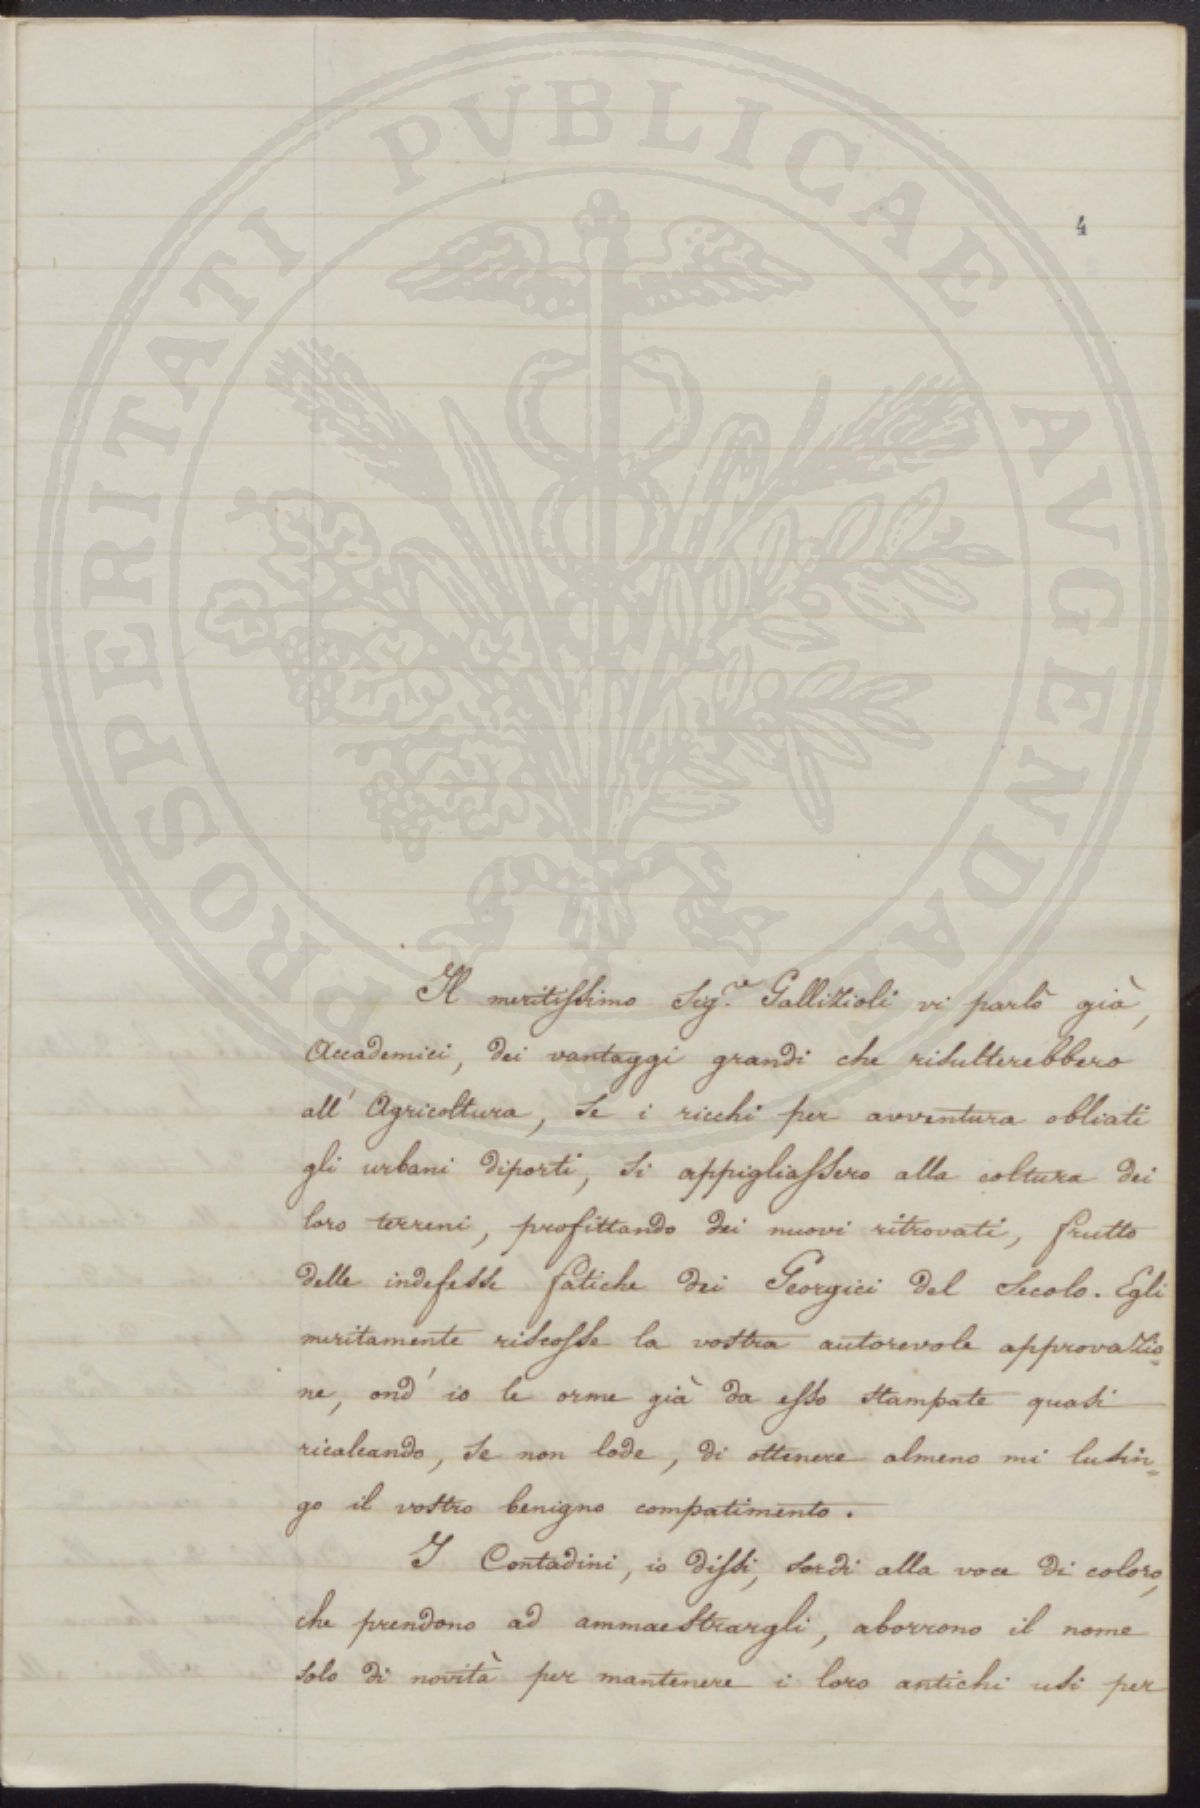 PROSPERITATI PUBLICAE AUGENDAE
4
Il meritissimo Sig.re Gallizioli vi parlò già,
Accademici, dei vantaggi grandi che risulterebbero
all' Agricoltura, se i ricchi per avventura obliati
gli urbani diporti, si appigliassero alla coltura dei
loro terreni, profittando dei nuovi ritrovati, frutto
delle indefesse fatiche dei Georgici del Secolo. Egli
meritamente riscosse la vostra autorevole approvazio=
ne, ond' io le orme già da esso stampate quasi
ricalcando, se non lode, di ottenere almeno mi lusin=
go il vostro benigno compatimento.
I Contadini, io dissi, sordi alla voce di coloro,
che prendono ad ammaestrargli, aborrono il nome
solo di novità per mantenere i loro antichi usi per